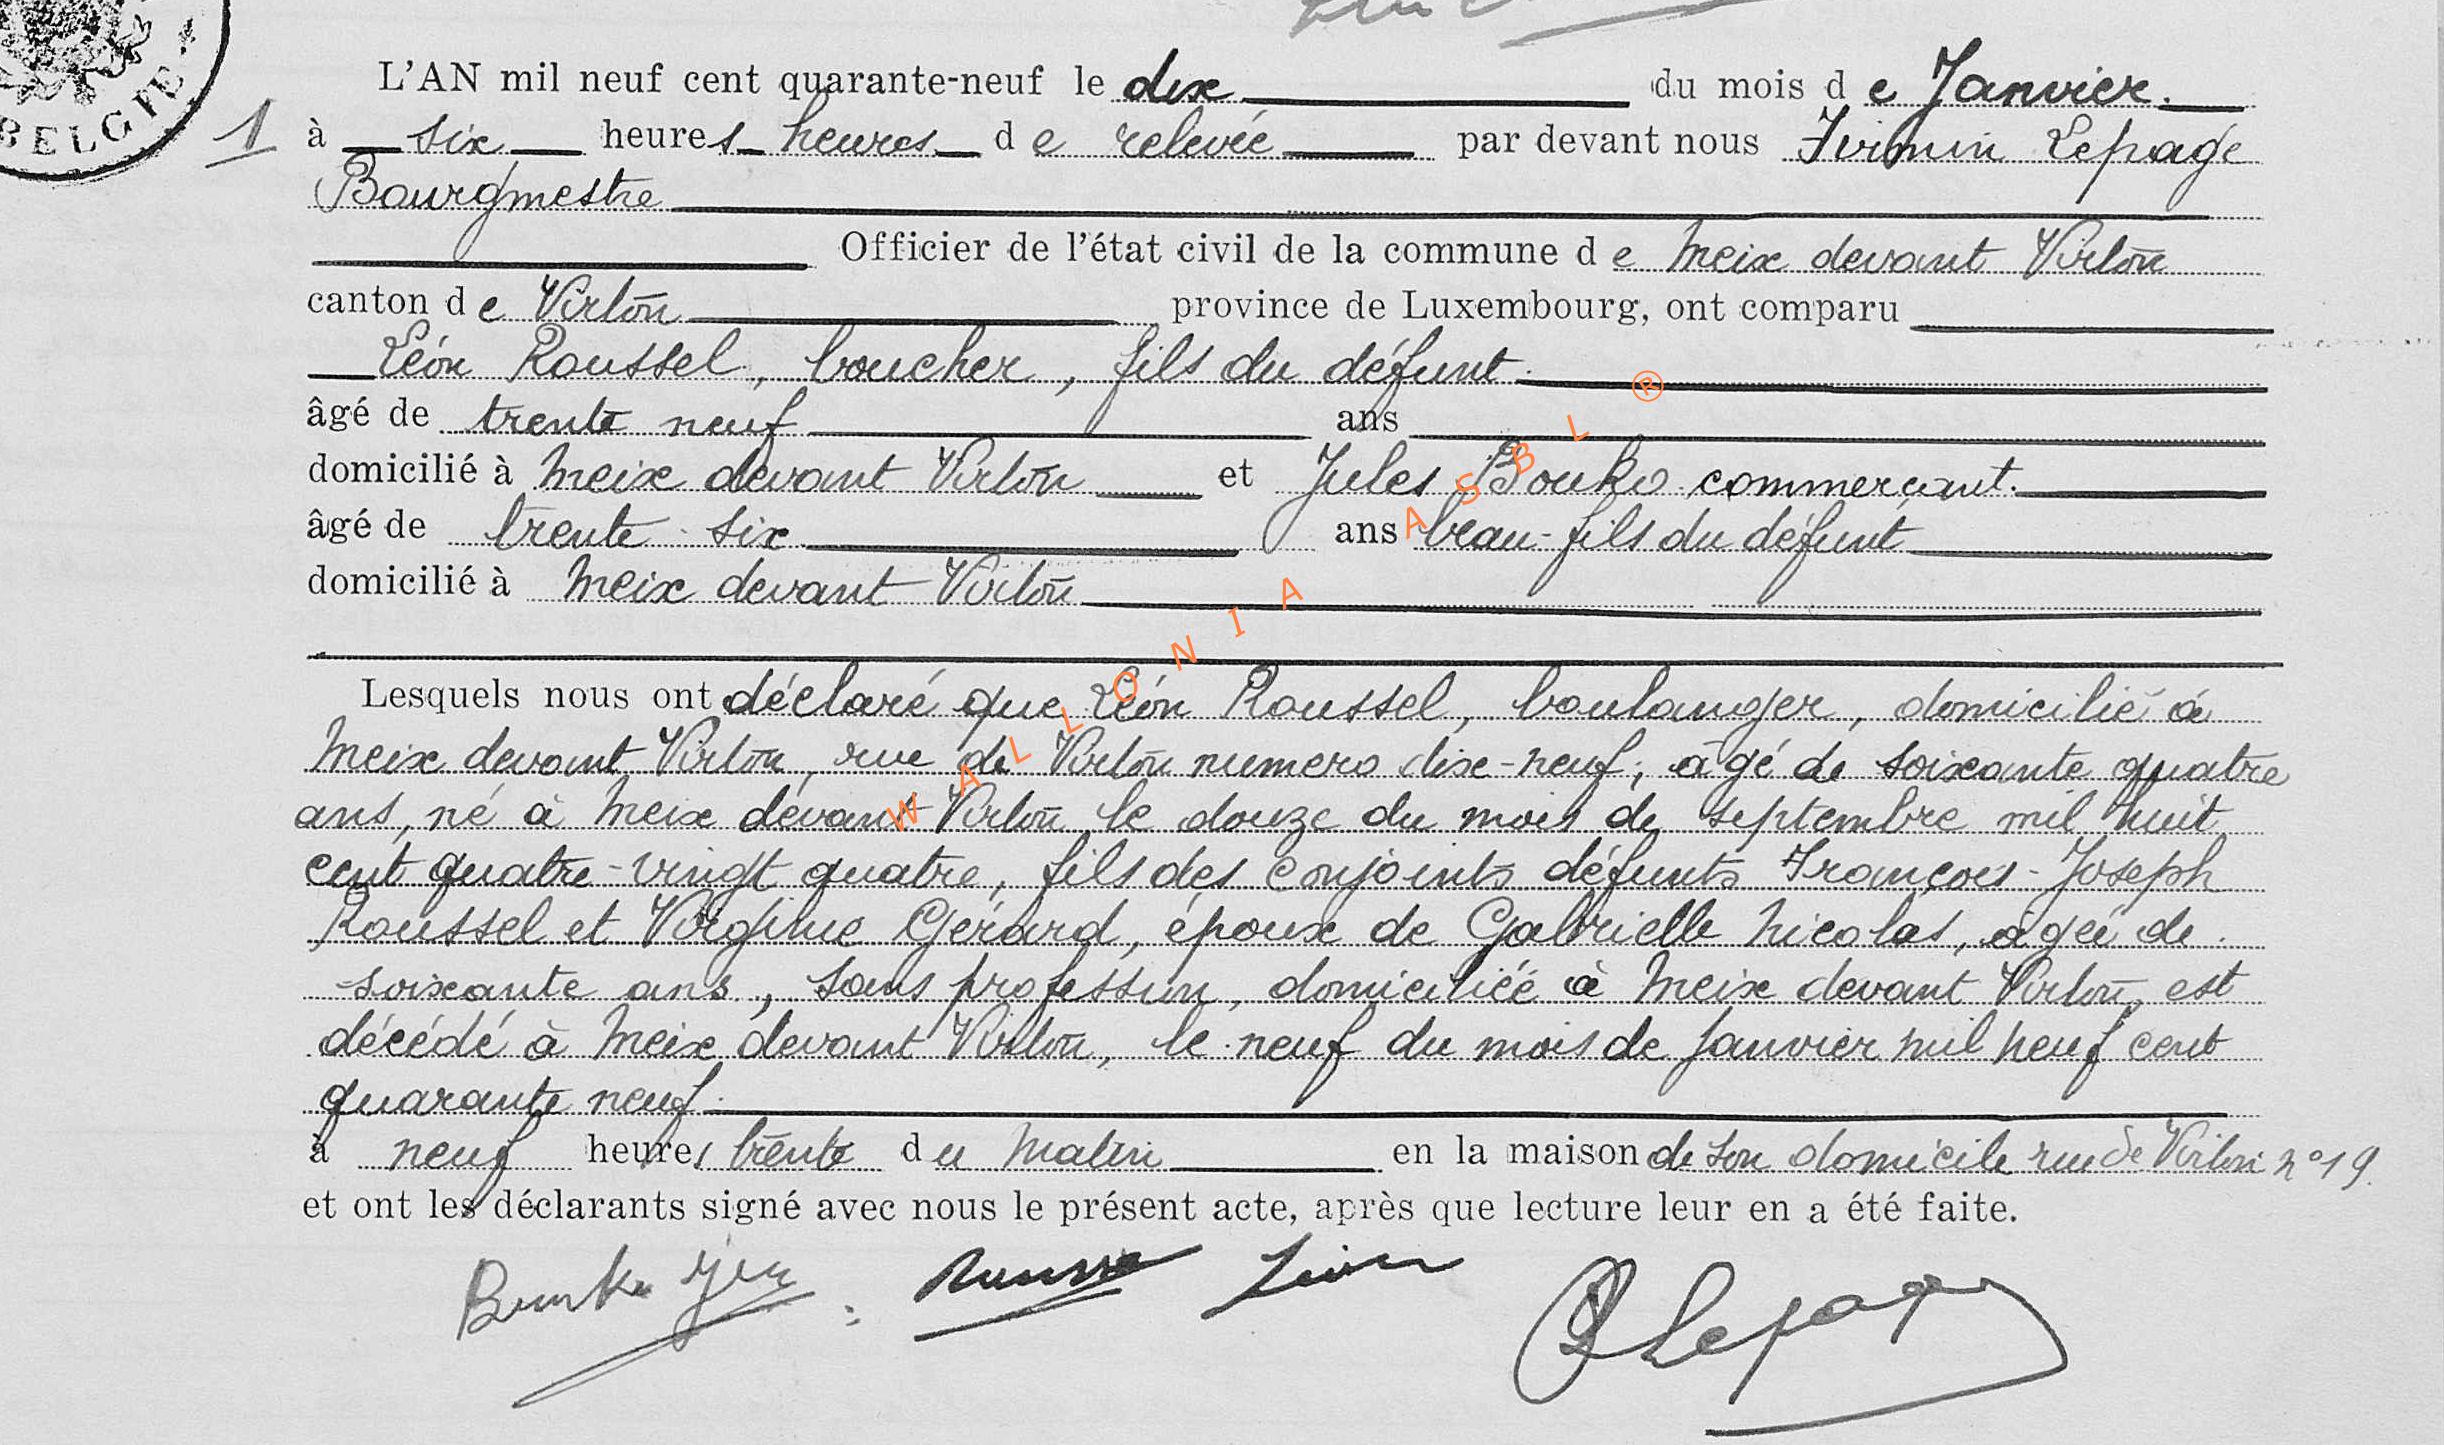 BELGIE
L'AN mil neuf cent quarante-neuf le dix du mois d e Janvier.
1 à six heures heures d e relevée par devant nous Firmin Lepage
Bourgmestre
Officier de l'état civil de la commune d e Meix devant Virton
canton d e Virton province de Luxembourg, ont comparu
Léon Roussel, boucher, fils du défunt.
âgé de trente neuf ans
domicilié à Meix devant Virton et Jules Bouko commerçant.
âgé de trente-six ans beau-fils du défunt
domicilié à Meix devant Virton
Lesquels nous ont déclaré que Léon Roussel, boulanger, domicilié à
Meix devant Virton, rue de Virton numero dix-neuf, âgé de soixante quatre
ans, né à Meix devant Virton le douze du mois de septembre mil huit
cent quatre-vingt quatre, fils des conjoints défunts François-Joseph
Roussel et Virginie Gérard, époux de Gabrielle Nicolas, âgée de
soixante ans, sans profession, domiciliée à Meix devant Virton, est
décédé à Meix devant Virton, le neuf du mois de Janvier mil neuf cent
quarante neuf.
à neuf heures trente du matin en la maison de son domicile rue de Virton n° 19.
et ont les déclarants signé avec nous le présent acte, après que lecture leur en a été faite.
Lepage
WALLONIA ASBL ®